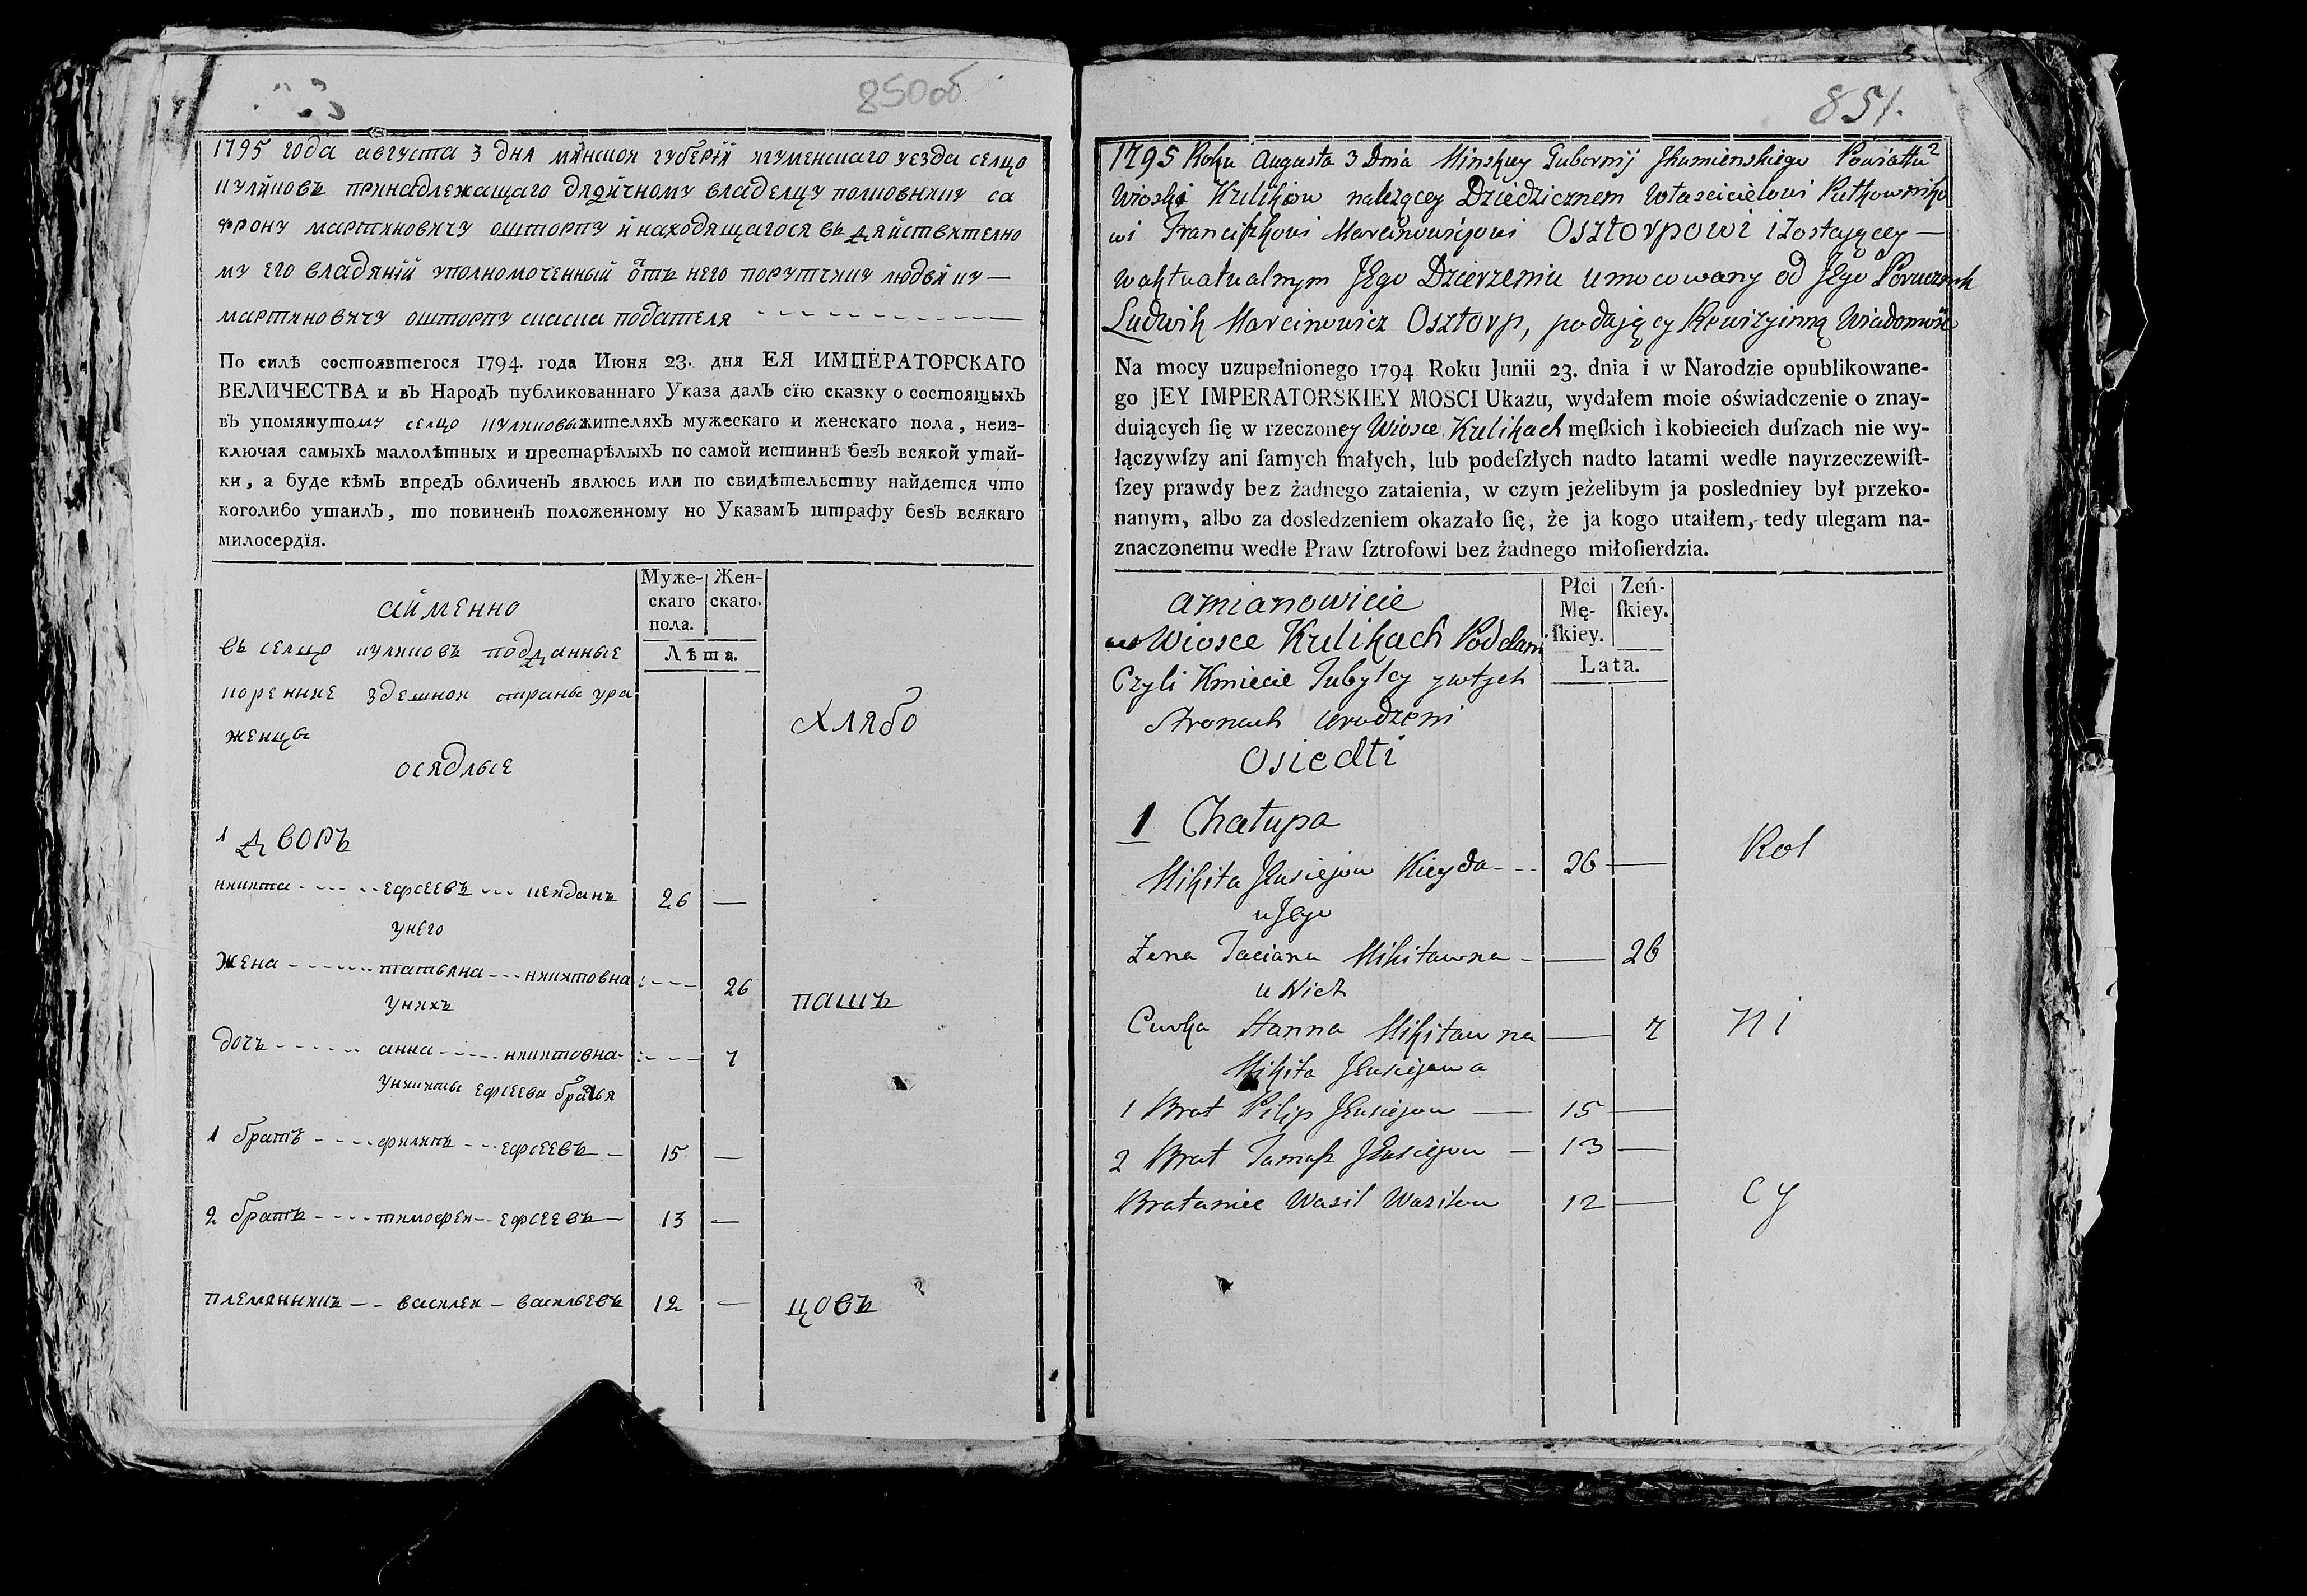 850об
1795 года августа 3 дня минской губерній игуменскаго уезда селцо
куликовъ принадлежащаго дядичному владелцу полковнику
фрону мартиновичу ошторпу и находящагося въ действително
му его владяній уполномоченный отъ него порутчику людвику —
мартиновичу ошторпу подателя
По силѣ состоявшегося 1794. года Июня 23. дня ЕЯ ИМПЕРАТОРСКАГО
ВЕЛИЧЕСТВА и въ Народъ публикованнаго Указа далъ сїю сказку о состоящыхъ
въ упомянутому селцо куликовы жителяхъ мужескаго и женскаго пола, неиз-
ключая самыхъ малолѣтных и престарѣлыхъ по самой истиннѣ безъ всякой утай-
ки, а буде кѣмъ впредъ обличенъ явлюсь или по свидѣтельству найдется что
коголибо утаилъ, то повиненъ положенному по Указамъ штрафу безъ всякаго
милосердїя.
Муже-
скаго
пола.
Жен-
скаго.
Лѣта.
аименно
въ селцо куликовъ подданные
коренные здешной страны ура
женцы
осядлые
хлябо
1 дворъ
никита - - - - - ефсеевъ - - - кейданъ 26 —
унего
жена - - - - - - татьяна - - - никитовна - - - 26
унихъ
пашъ
дочь - - - - - - анна - - - - никитовна - - - - 7
уникиты ефсеева братья
1 братъ - - - - филипъ - - - ефсеевъ — 15 —
2 братъ - - - - тимофей - - ефсеевъ — 13 —
племянникъ - - василей - васильевъ 12 — цовъ
851.
1795 Roku Augusta 3 Dnia Minskey Gubernij Jhumienskiego Powiattu
Wioski Kulikow należącey Dziedzicznem Włascicielowi Pułkowniko
wi Franciszkowi Marcinowiczowi Osztorpowi i zostającey —
w aktualnym Jego Dzierzeniu umocowany od Jego Porucznik
Ludwik Marcinowicz Osztorp, podający Rewizyinną Wiadomość
Na mocy uzupełnionego 1794 Roku Junii 23. dnia i w Narodzie opublikowane-
go JEY IMPERATORSKIEY MOSCI Ukazu, wydałem moie oświadczenie o znay-
duiących ſię w rzeczoney Wiosce Kulikach męſkich i kobiecich duſzach nie wy-
łączywſzy ani ſamych małych, lub podeſzłych nadto latami wedle nayrzeczewiſt-
ſzey prawdy bez żadnego zataienia, w czym jeżelibym ja posledniey był przeko-
nanym, albo za dosledzeniem okazało ſię, że ja kogo utaiłem, tedy ulegam na-
znaczonemu wedle Praw ſztrofowi bez żadnego miłoſierdzia.
Płci
Mę-
ſkiey.
Zeń-
ſkiey.
Lata.
amianowicie
w Wiosce Kulikach Poddani
Czyli Kmiecie Tubylcy ywtych
Stronach urodzeni
Osiedli
1 Chałupa
Mikita Jewsiejow Kieyda - - - 26 — Rol
u Jego
Żena Taciana Mikitawna - — 26
u Nich
Curka Hanna Mikitawna — 7 ni
Mikita Jewsiejowa
1 Brat Pilip Jewsiejow — 15 —
2 Brat Tamaſz Jewsiejow — 13 —
Brataniec Wasil Wasilow 12 — cy